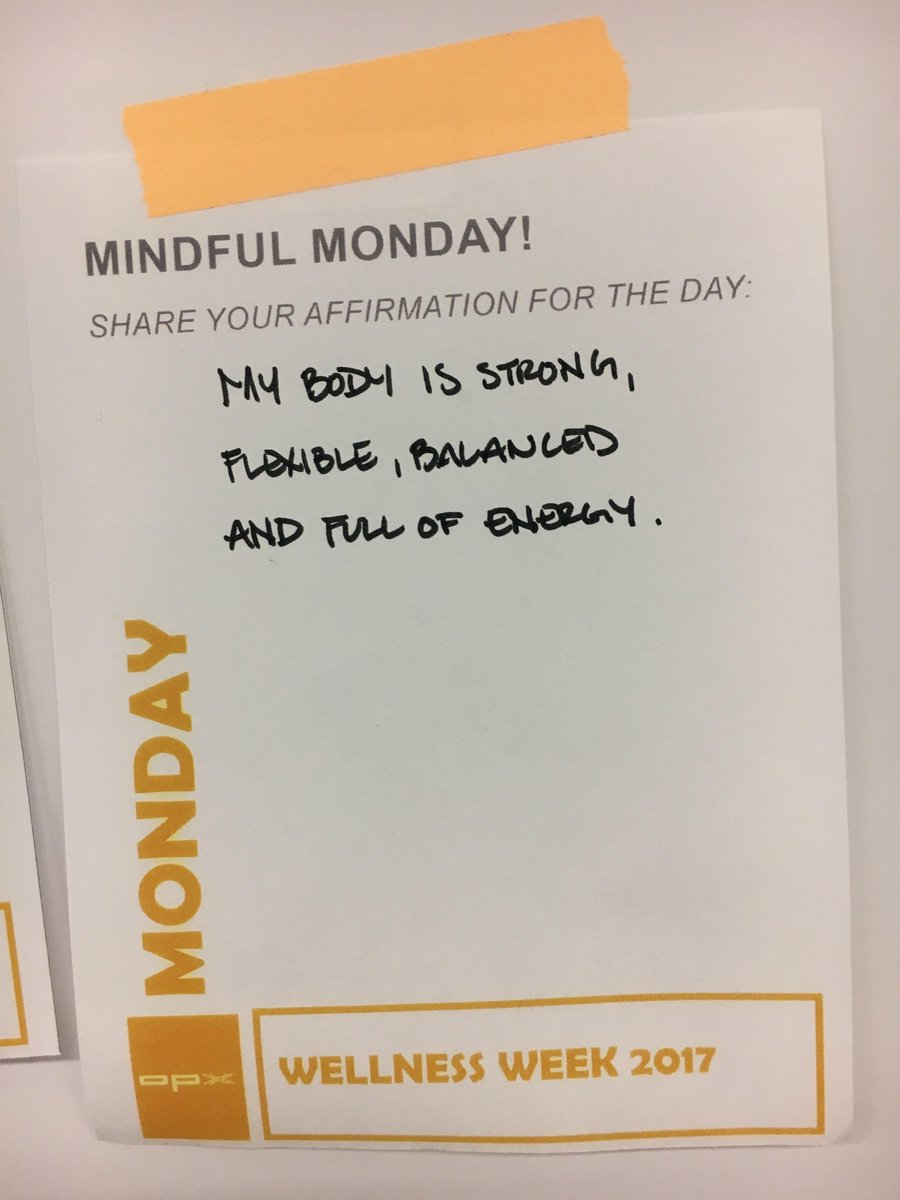 MINDFUL MONDAY!
SHARE YOUR AFFIRMATION FOR THE DAY:
MY BODY IS STRONG,
FLEXIBLE, BALANCED
AND FULL OF ENERGY.
MONDAY
opx
WELLNESS WEEK 2017